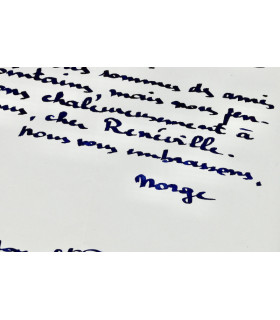 us sommes des amis
ontains, mais nous pen-
ons chaleureusement à
ous, cher Renéville.
nous vous embrassons,
Norge